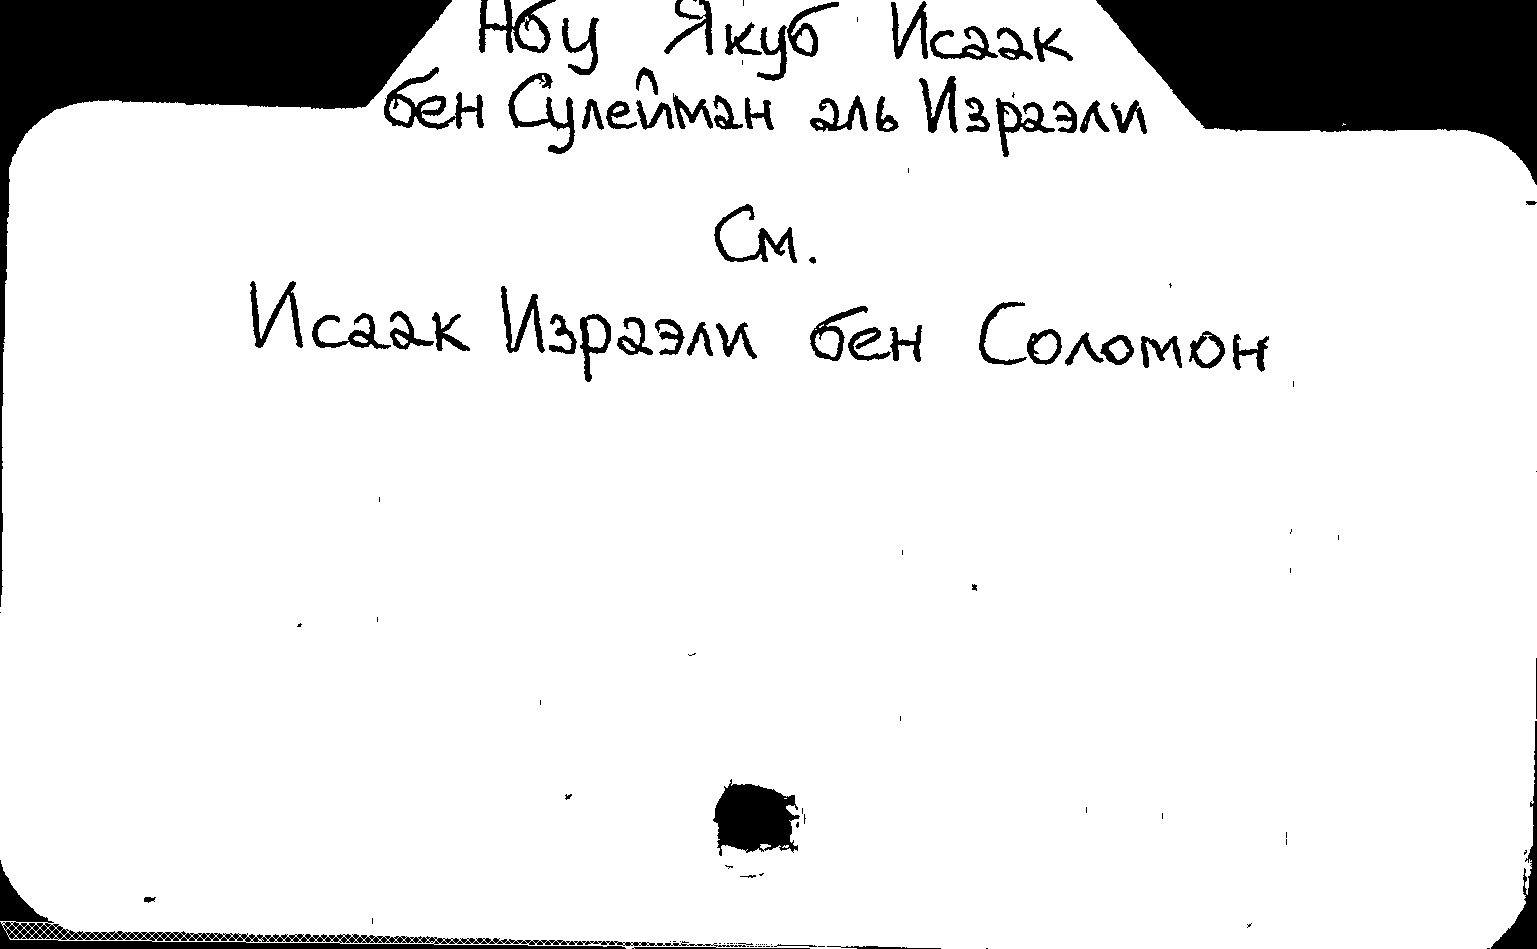 Абу Якуб Исаак
бен Сулейман аль Израэли
См.
Исаак Израэли бен Соломон